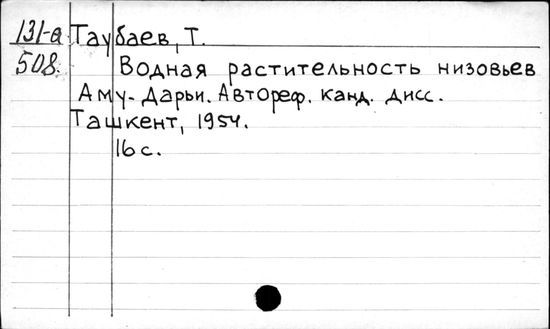 131-а Таубаев, Т.
508. Водная растительность низовьев
Аму-Дарьи. Автореф. канд. дисс.
Ташкент, 1954.
16 с.